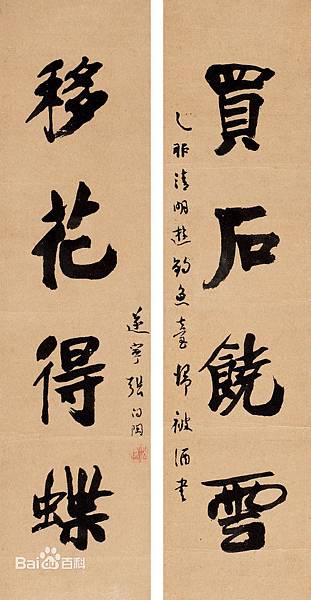 買石饒雲
乙卯清明遊釣魚臺歸被酒書
移花得蝶
遂寧張問陶
Bai百科